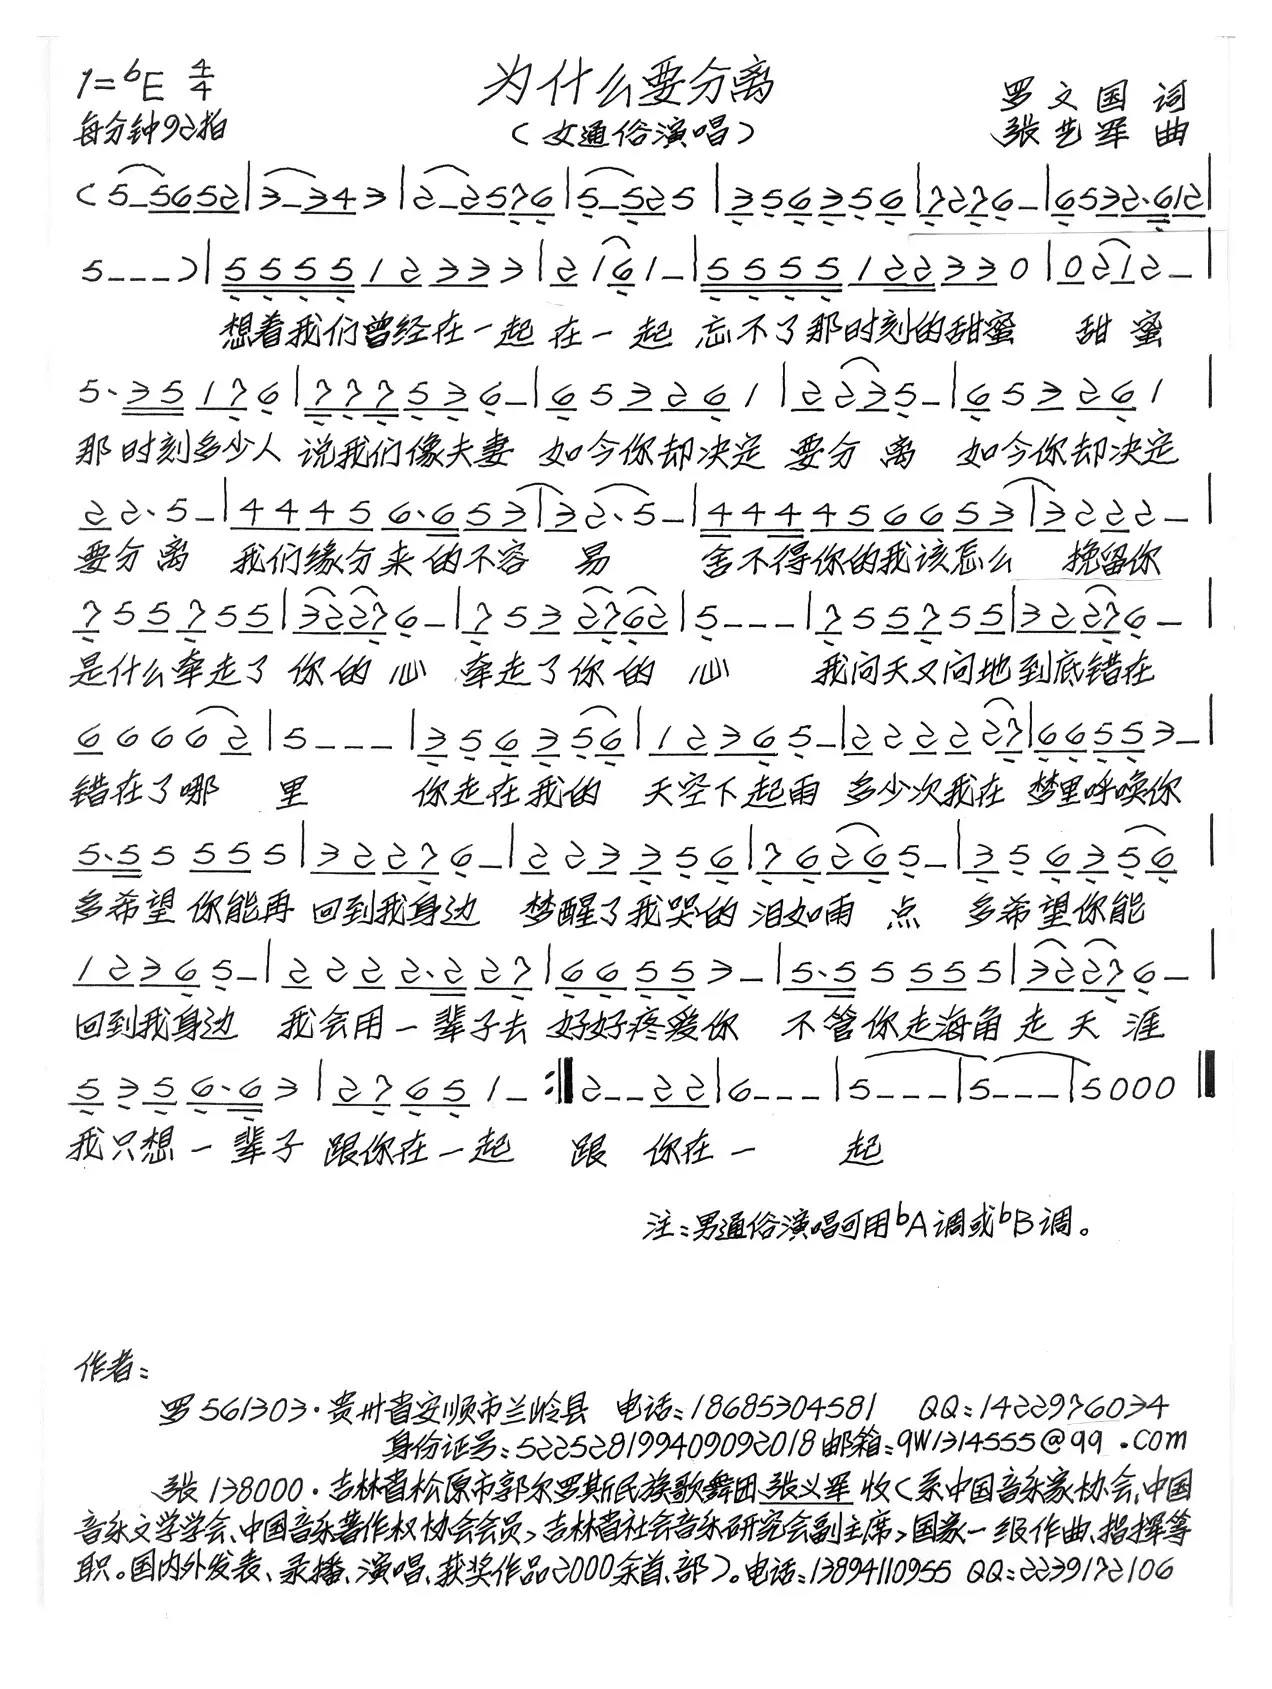 1=♭E 4/4
为什么要分离
罗文国 词
每分钟92拍
(女通俗演唱)
张艺军 曲
(5-5652|3-343|2-2576|5-525|356356|7276-|6532·612|
5---)|555512333|2161-|5555122330|0212-|
想着我们曾经在一起在一起 忘不了那时刻的甜蜜 甜蜜
5·35176|777536-|653261|2235-|653261|
那时刻多少人 说我们像夫妻 如今你却决定 要分离 如今你却决定
22·5-|44456·653|32·5-|444456653|3222-|
要分离 我们缘分来的不容易 舍不得你的我该怎么 挽留你
755755|322276-|7532762|5---|755755|32276-|
是什么牵走了你的心 牵走了你的心 我问天又问地到底错在
66662|5---|356356|12365-|2222227|66553-|
错在了哪里 你走在我的 天空下起雨 多少次我在 梦里呼唤你
5·55555|32276-|223356|76265-|356356|
多希望你能再 回到我身边 梦醒了我哭的泪如雨点 多希望你能
12365-|2222·227|66553-|5·55555|32276-|
回到我身边 我会用一辈子去 好好疼爱你 不管你走海角走天涯
5356·63|27651-:‖2--22|6---|5---|5---|5000‖
我只想一辈子 跟你在一起 跟 你在一 起
注:男通俗演唱可用♭A调或♭B调。
作者:
罗561303·贵州省安顺市兰岭县 电话:18685304581 QQ:1422976034
身份证号:522528199409092018邮箱:9W1314555@qq.com
张138000·吉林省松原市郭尔罗斯民族歌舞团张义军收(系中国音乐家协会、中国
音乐文学学会、中国音乐著作权协会会员,吉林省社会音乐研究会副主席,国家一级作曲、指挥等
职。国内外发表、录播、演唱、获奖作品2000余首、部)。电话:13894110955 QQ:2239172106